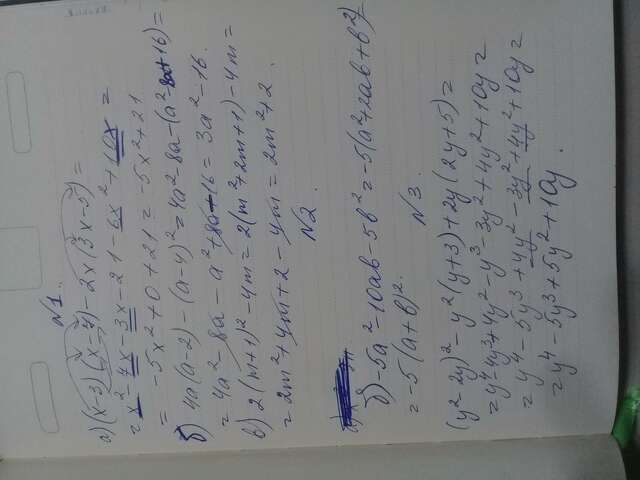 N1.
а) (x-3)(x-7)-2x(3x-5)=
= x²-7x-3x-21-6x²+10x=
= -5x²+0+21=-5x²+21
б) 4a(a-2)-(a-4)²=4a²-8a-(a²-8a+16)=
=4a²-8a-a²+8a-16=3a²-16.
в) 2(m+1)²-4m=2(m²+2m+1)-4m=
=2m²+4m+2-4m=2m²+2.
N2.
б) -5a²-10ab-5b²=-5(a²+2ab+b²)=
=-5(a+b)².
N3.
(y²-2y)²-y²(y+3)+2y(2y+5)=
=y⁴-4y³+4y²-y³-3y²+4y²+10y=
=y⁴-5y³+4y²-3y²+4y²+10y=
=y⁴-5y³+5y²+10y.